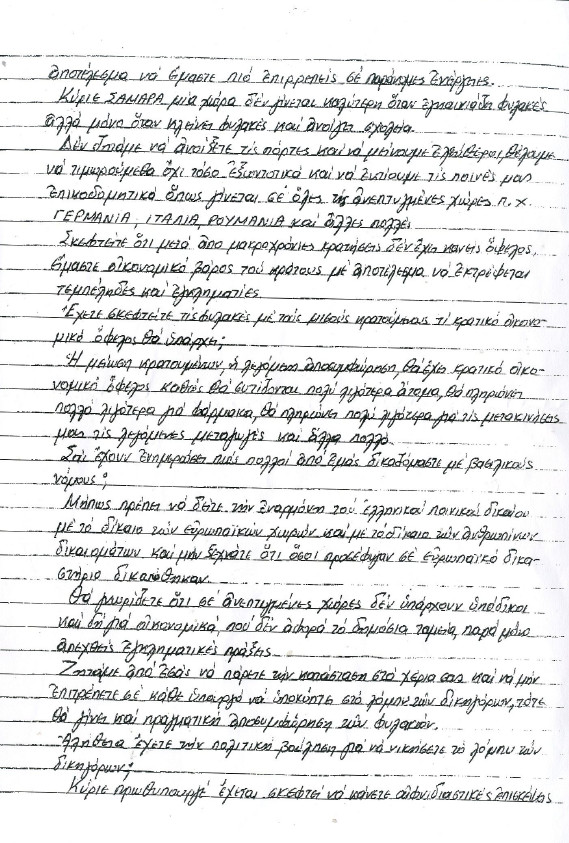 ἀποτέλεσμα νά εἴμαστε πιό ἐπιρρεπεῖς σέ παράνομες ἐνέργιες.
Κύριε ΣΑΜΑΡΑ μια χώρα δέν γίνεται καλύτερη ὅταν ἐγκαινιάζει φυλακές
ἀλλά μόνο ὅταν κλείνει φυλακές καί ἀνοίγει σχολεία.
Δέν ζητάμε νά ἀνοίξετε τίς πόρτες καί νά μείνουμε ἐλεύθεροι, θέλουμε
νά τιμωρούμεθα ὄχι τόσο ἐξοντωτικά καί νά ἐκτίουμε τίς ποινές μας
ἐποικοδομητικά ὅπως γίνεται σέ ὅλες τίς ἀνεπτυγμένες χώρες π.χ
ΓΕΡΜΑΝΙΑ, ΙΤΑΛΙΑ, ΡΟΥΜΑΝΙΑ καί ἄλλες πολλές.
Σκεφτεῖτε ὅτι μετά ἀπο μακροχρόνιες κρατήσεις δέν ἔχει κανεις ὄφελος,
εἴμαστε οἰκονομικό βάρος τοῦ κράτους με ἀποτέλεσμα νά ἐκτρέφεται
τεμπέληδες καί ἐγκληματίες.
Ἔχετε σκεφτεῖτε τίς φυλακές μέ τούς μισούς κρατούμενους τί κρατικό οἰκονο-
μικό ὄφελος θά ὑπάρχει;
Ἡ μείωση κρατουμένων, ἡ λεγόμενη ἀποσυμφόρηση, θά ἔχει κρατικό οἰκο-
νομικό ὄφελος καθώς θά σιτίζονται πολύ λιγότερα ἄτομα, θά πληρώνει
πολλά λιγότερα γιά φάρμακα, θά πληρώνει πολύ λιγότερα γιά τίς μετακινήσεις
μας τίς λεγόμενες μεταγωγές καί ἄλλα πολλά.
Σᾶς ἔχουν ἐνημερώσει πώς πολλοί ἀπό ἐμᾶς δικαζόμαστε μέ βασιλικούς
νόμους;
Μήπως πρέπει νά δεῖτε τήν ἐναρμόνιση τοῦ ἑλληνικοῦ ποινικοῦ δικαίου
μέ τό δίκαιο τῶν εὐρωπαϊκῶν χωρῶν καί με τό δίκαιο τῶν ἀνθρωπίνων
δικαιομάτων καί μήν ξεχνάτε ὅτι ὅσοι προσέφυγαν σέ εὐρωπαϊκό δικα-
στήριο δικαιώθηκαν.
Θά γνωρίζετε ὅτι σέ ἀνεπτυγμένες χώρες δέν ὑπάρχουν ὑπόδικοι
καί δή γιά οἰκονομικά, πού δέν ἀφορᾶ τό δημόσια ταμεία, παρά μόνο
ἀπεχθεῖς ἐγκληματικές πράξεις.
Ζητᾶμε ἀπό ἐσᾶς νά πάρετε τήν κατάσταση στά χέρια σας καί νά μήν
ἐπιτρέπετε σέ κάθε ὑπουργό νά ὑποκύπτει στό λόμπυ τῶν δικηγόρων, τότε
θά γίνει καί πραγματική ἀποσυμφόρηση τῶν φυλακῶν.
Ἀλήθεια ἔχετε τήν πολιτική βούληση γιά νά νικήσετε τό λόμπυ τῶν
δικηγόρων;
Κύριε πρωθυπουργέ ἔχεται σκεφτεῖ νά κάνετε αἰφνιδιαστικές ἐπισκέψεις